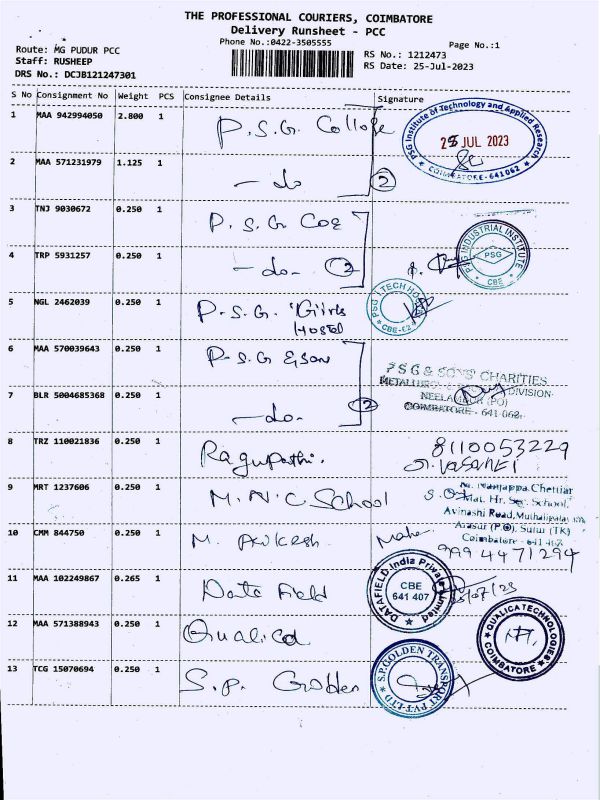 THE PROFESSIONAL COURIERS, COIMBATORE
Delivery Runsheet - PCC
Phone No.:0422-3505555
Page No.:1
Route: MG PUDUR PCC
Staff: RUSHEEP
DRS No.: DCJB121247301
RS No.: 1212473
RS Date: 25-Jul-2023
S No Consignment No Weight PCS Consignee Details Signature
1 MAA 942994050 2.800 1 P.S.G. College
PSG Institute of Technology and Applied Research
25 JUL 2023
COIMBATORE-641062
2 MAA 571231979 1.125 1 - do 2
3 TNJ 9030672 0.250 1 P.S.G COE
PSG INDUSTRIAL INSTITUTE
PSG
CBE
4 TRP 5931257 0.250 1 - do - 2
5 NGL 2462039 0.250 1 P.S.G. Girls
Hostel
PSG TECH
6 MAA 570039643 0.250 1 P.S.G &Sons
PSG & SONS' CHARITIES
DIVISION
NEELAMBUR (PO)
COIMBATORE - 641 062
7 BLR 5004685368 0.250 1 - do - 2
8 TRZ 110021836 0.250 1 Ragupathi.
8110053229
9 MRT 1237606 0.250 1 M.N.C School
Nanjappa Chettiar
Mat. Hr. Sec. School,
Avinashi Road, Muthalipalayam
Arasur (P.O), Sulur (TK)
Coimbatore - 641 407
10 CMM 844750 0.250 1 M.
9994471294
11 MAA 102249867 0.265 1 Data Field
DATAFIELD India Private Limited
CBE
641 407
12 MAA 571388943 0.250 1 Qualica
QUALICA TECHNOLOGIES
COIMBATORE
13 TCG 15070694 0.250 1 S.P. Golden
S.P.GOLDEN TRANSPORT PVT-LTD